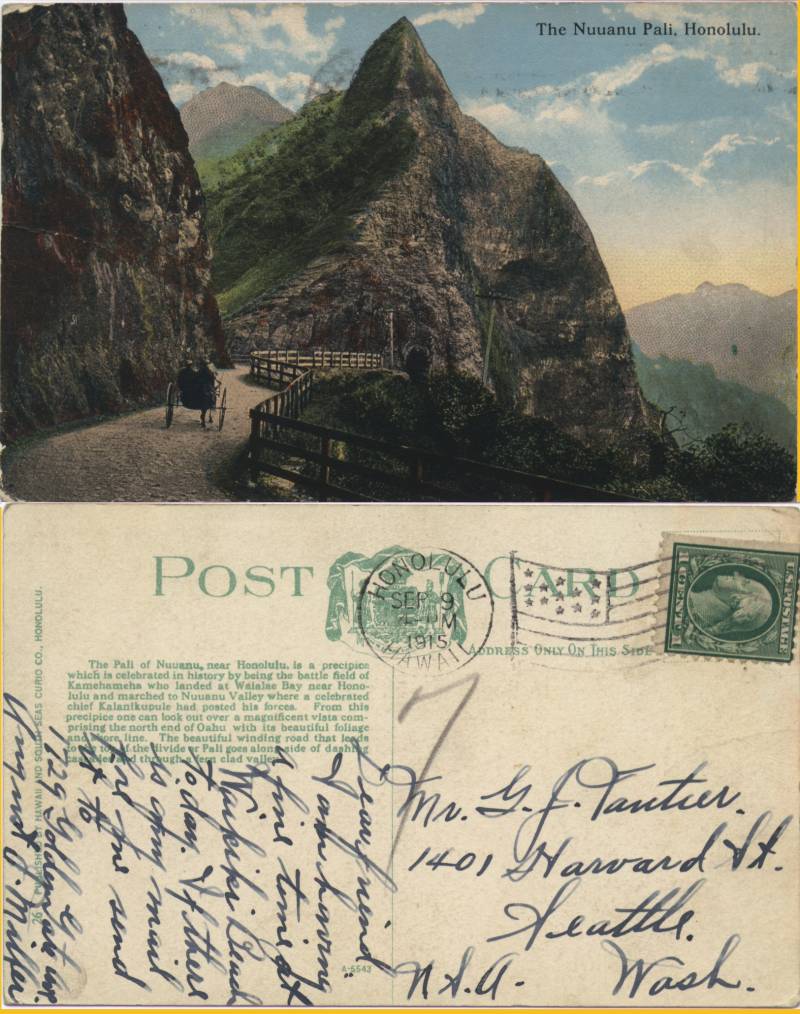 The Nuuanu Pali, Honolulu.
POST CARD
HONOLULU
SEP 9
M
1915
HAWAII
U.S. POSTAGE
ADDRESS ONLY ON THIS SIDE
The Pali of Nuuanu, near Honolulu, is a precipice
which is celebrated in history by being the battle field of
Kamehameha who landed at Waialae Bay near Hono-
lulu and marched to Nuuanu Valley where a celebrated
chief Kalanikupule had posted his forces. From this
precipice one can look out over a magnificent vista com-
prising the north end of Oahu with its beautiful foliage
and shore line. The beautiful winding road that leads
to the top of the divide or Pali goes along side of dashing
cascades and through a fern clad valley.
26 PUBLISHED BY HAWAII AND SOUTH SEAS CURIO CO., HONOLULU.
A-5543
7
Dear friend
I am having
a fine time at
Waikiki Beach
today. If there
is any mail
for me send
it to
1629 Ave.
August J. Miller
Mr. G. J. Tantier.
1401 Harvard St.
Seattle.
Wash.